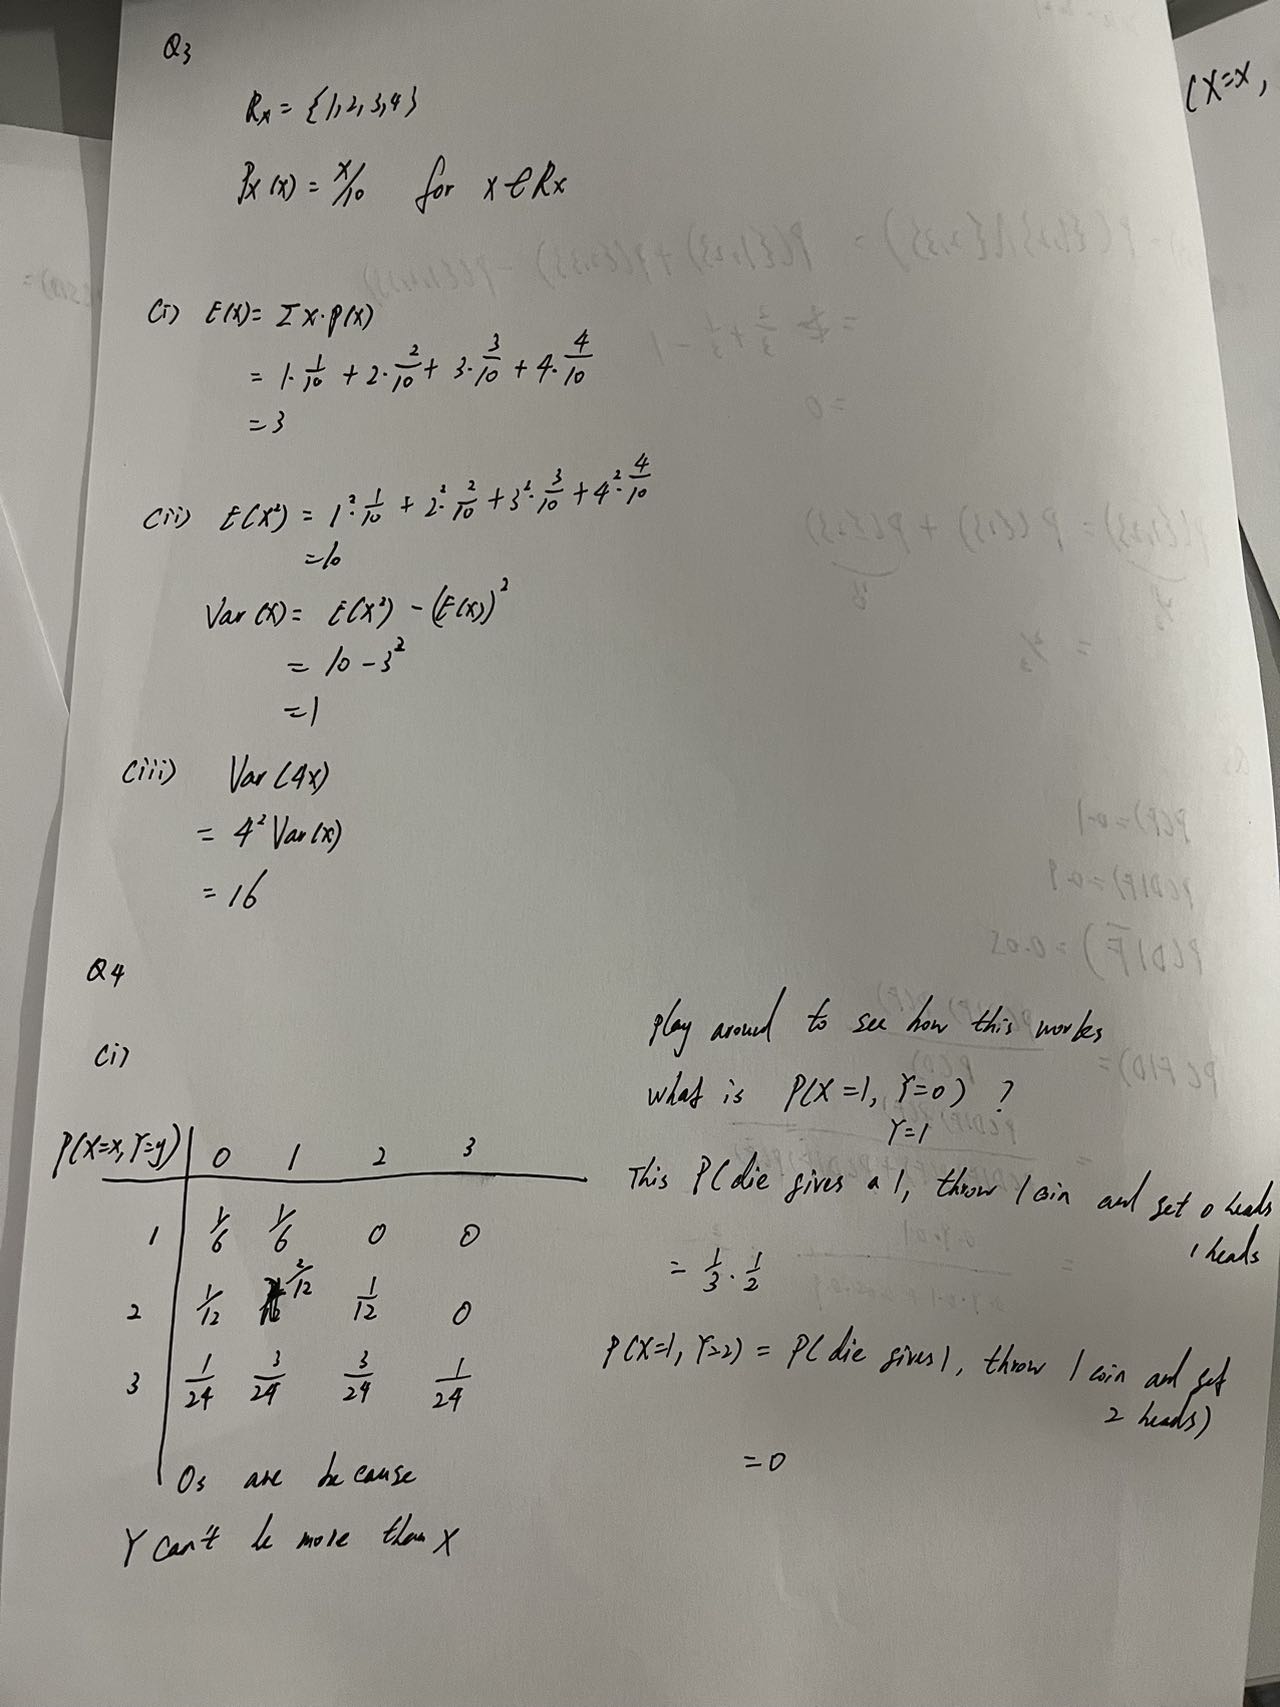 Q3
(X=x,
Rx = {1,2,3,4}
Px(x) = x/10 for x ∈ Rx
(i) E(X) = Σ x·p(x)
= 1·1/10 + 2·2/10 + 3·3/10 + 4·4/10
= 3
(ii) E(X²) = 1²·1/10 + 2²·2/10 + 3²·3/10 + 4²·4/10
= 10
Var(X) = E(X²) - (E(X))²
= 10 - 3²
= 1
(iii) Var(4X)
= 4² Var(X)
= 16
Q4
(i)
P(X=x, Y=y) 0 1 2 3
1 1/6 1/6 0 0
2 1/12 2/12 1/12 0
3 1/24 3/24 3/24 1/24
0s are because
Y can't be more than X
play around to see how this works
what is P(X=1, Y=0) ?
Y=1
This P(die gives a 1, throw 1 coin and get 0 heads
1 heads
= 1/3 · 1/2
P(X=1, Y=2) = P(die gives 1, throw 1 coin and get
2 heads)
= 0